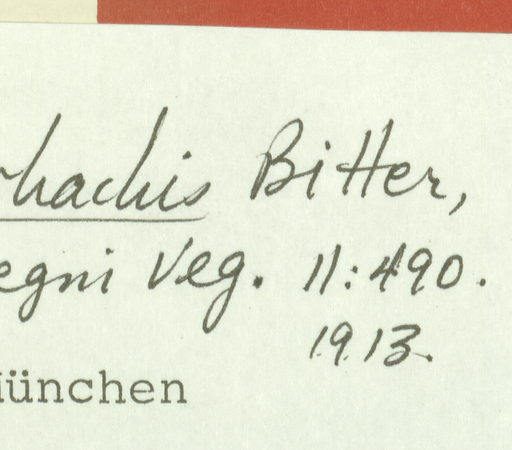 rhachis Bitter,
egni Veg. 11:490.
1913.
München